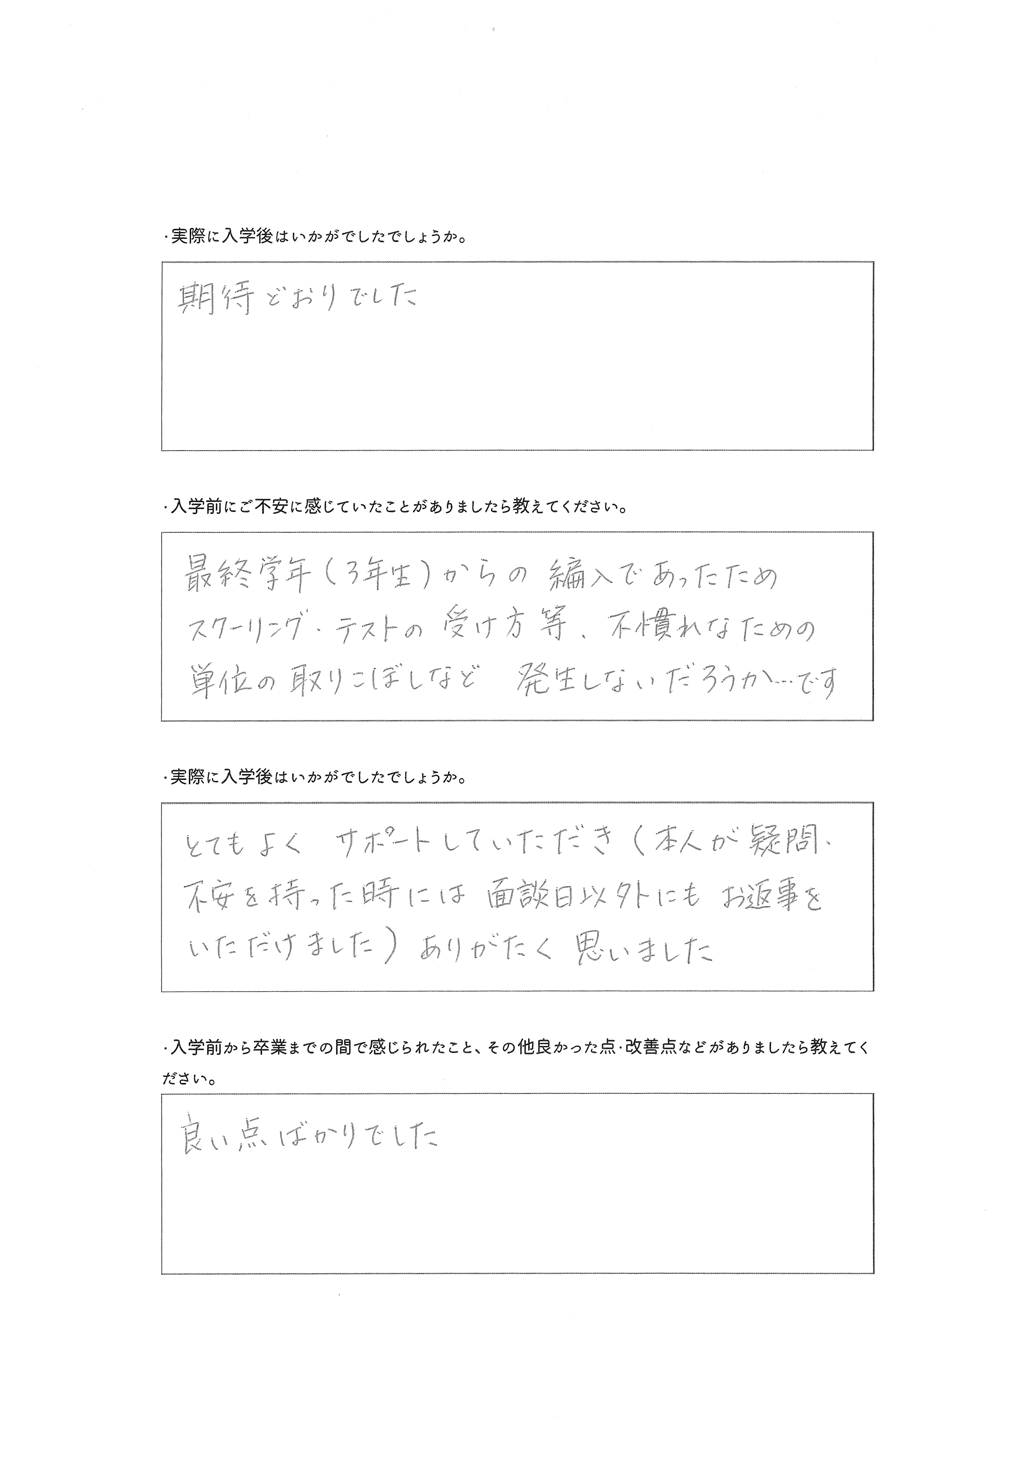 ・実際に入学後はいかがでしたでしょうか。
期待どおりでした
・入学前にご不安に感じていたことがありましたら教えてください。
最終学年(3年生)からの編入であったため
スクーリング・テストの受け方等、不慣れなための
単位の取りこぼしなど 発生しないだろうか…です
・実際に入学後はいかがでしたでしょうか。
とてもよく サポートしていただき(本人が疑問・
不安を持った時には 面談日以外にも お返事を
いただけました) ありがたく 思いました
・入学前から卒業までの間で感じられたこと、その他良かった点・改善点などがありましたら教えてく
ださい。
良い点ばかりでした